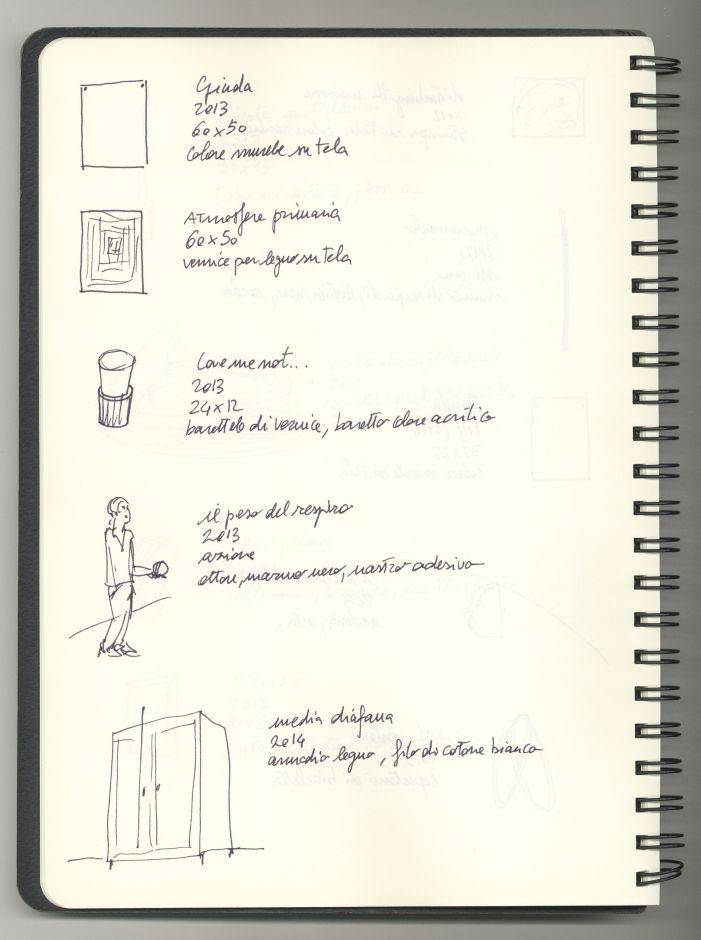 Giuda
2013
60x50
colore murale su tela
Atmosfere primaria
60x50
vernice per legno su tela
Love me not...
2013
24x12
barattolo di vernice, barattolo colore acrilico
il peso del respiro
2013
azione
attore, marmo nero, nastro adesivo
media diáfana
2014
armadio legno, filo di cotone bianco